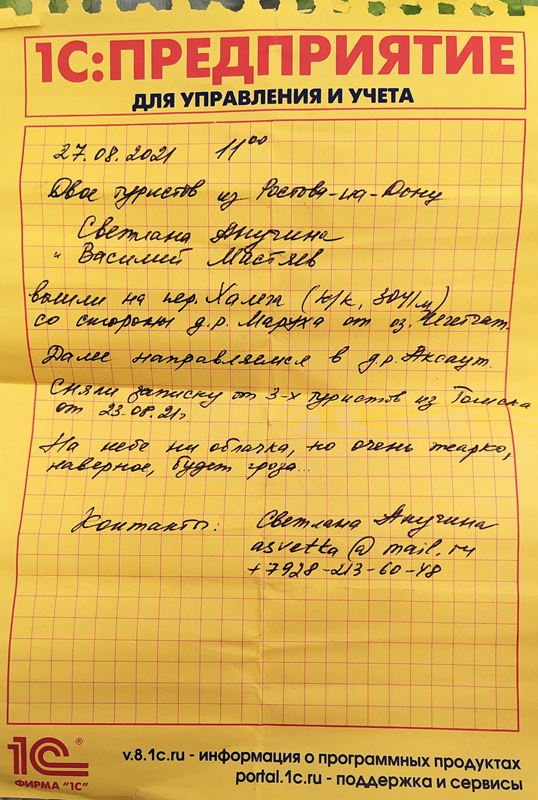 1С:ПРЕДПРИЯТИЕ
ДЛЯ УПРАВЛЕНИЯ И УЧЕТА
27.08.2021 11⁰⁰
Двое туристов из Ростова-на-Дону
Светлана Анучина
и Василий Мастяев
вышли на пер. Халега (н/к, 3041м)
со стороны д.р. Маруха от оз. Чегетчат.
Далее направляемся в д.р. Аксаут.
Сняли записку от 3-х туристов из Томска
от 23.08.21г.
На небе ни облачка, но очень жарко,
наверное, будет гроза...
Контакты: Светлана Анучина
asvetka@mail.ru
+7928-213-60-48
1С®
ФИРМА "1С"
v.8.1c.ru - информация о программных продуктах
portal.1c.ru - поддержка и сервисы